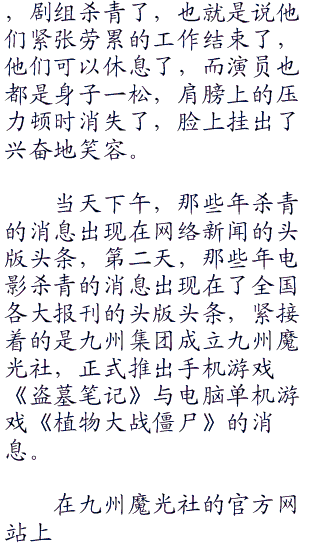 ，剧组杀青了，也就是说他
们紧张劳累的工作结束了，
他们可以休息了，而演员也
都是身子一松，肩膀上的压
力顿时消失了，脸上挂出了
兴奋地笑容。
当天下午，那些年杀青
的消息出现在网络新闻的头
版头条，第二天，那些年电
影杀青的消息出现在了全国
各大报刊的头版头条，紧接
着的是九州集团成立九州魔
光社，正式推出手机游戏
《盗墓笔记》与电脑单机游
戏《植物大战僵尸》的消
息。
在九州魔光社的官方网
站上